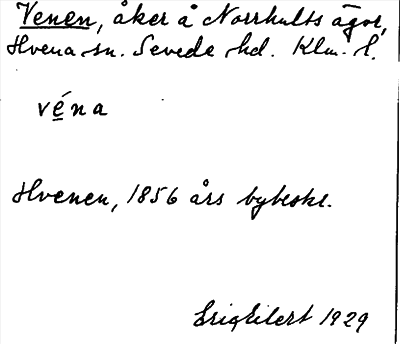 Venen, åker å Norrhults ägor,
Hvena sn. Sevede hd. Klm. l.
véna
Hvenen, 1856 års bybeskr.
Eriq Eilert 1929